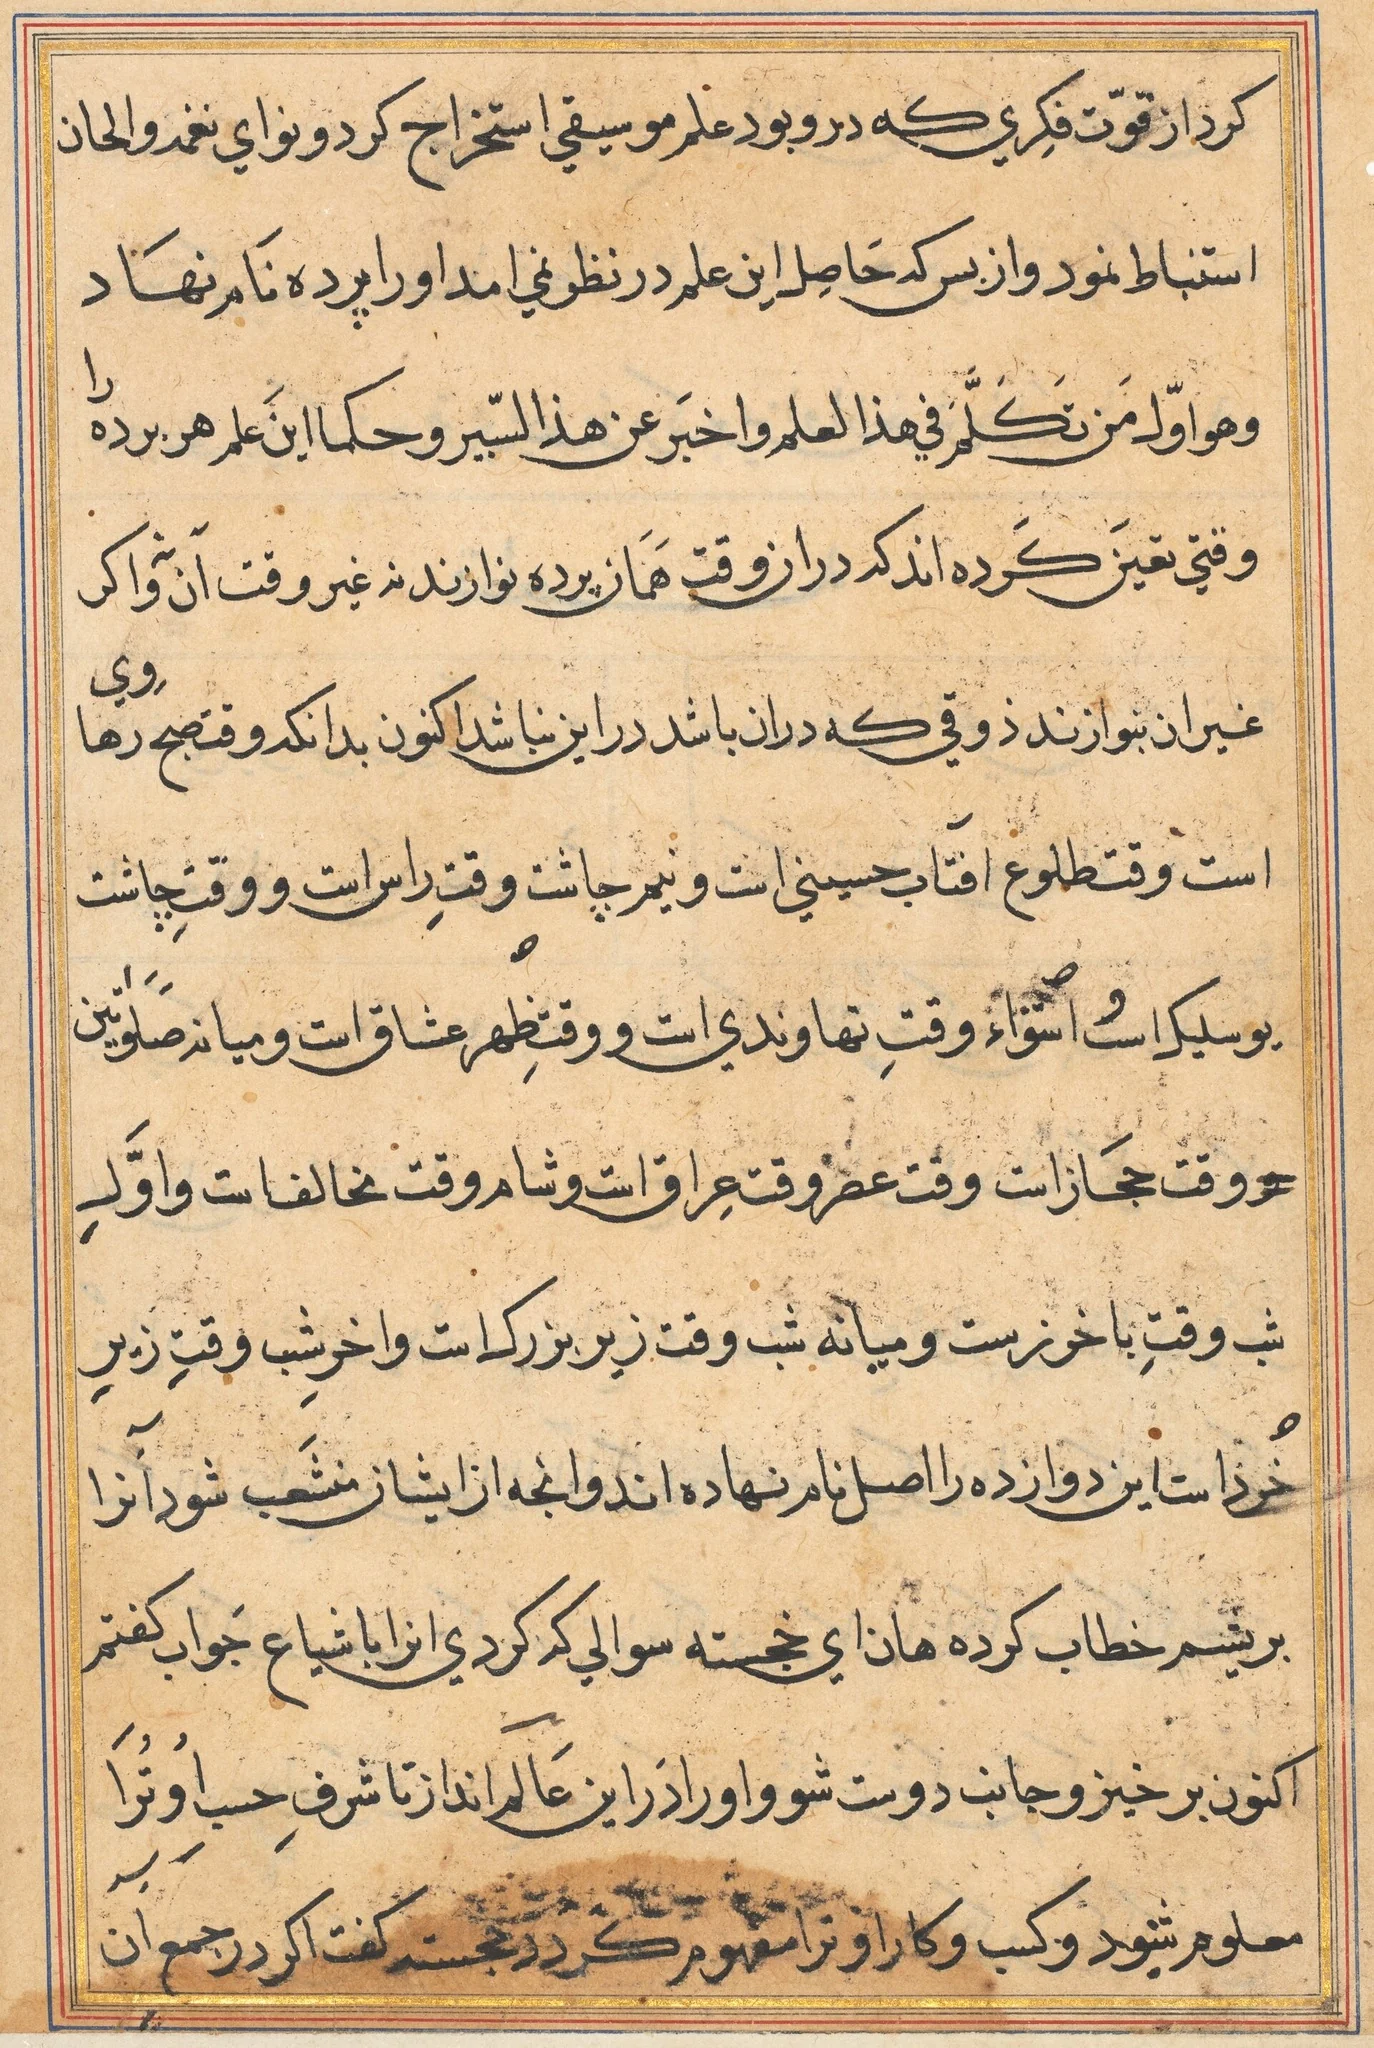 کرد از قوّت فکِري که درو بود علم موسیقي استخراج کرد و نواي نغمه و الحان
استنباط نمود و از بس که حَاصِل این علم در نظر نمي امد او را پرده نَام نهَاد
وهو اوّل مَن تَکَلَّمَ في هذا لعلم واخبَر عن هذا السّیر و حکما اینَ علم هر پرده را
وقتي تعینَ کَرده اند که در ان وقت هَمَان پرده نوازند نه غیر وقت آن و اکر
غیر ان بنوازند ذوقي که در ان باشد در این نباشد اکنون بدانکه وقت صبح رهاوي
است وقت طلوع افتاب حسیني است و نیم چاشت وقتِ راس است و وقتِ چاشت
بوسلیک است و استواء وقتِ نهاوندي است و وقتِ ظهر عشاق است و میانه صَلَوتین
و وقت حجَاز است وقت عصر وقت عِراق است و شام وقت مخالف است و اوَّلِ
شب وقتِ باخورست و میانه شب وقت زیر بزرک است و اخرِ شب وقتِ زیرِ
خُرد است این دوازده را اصل نام نهاده اند و انجه از ایشان منشَعب شود آنرا
بریشم خطاب کرده هان اي خجسته سوالي که کردي انرا باشیاع جَواب کفتم
اکنون بر خیز و جانب دوست شو و او را دَر این عَالم انداز تا شرفِ حسبِ اُو تُرَا
معلوم شود و کسب و کار او ترا مفهوم کَردد خجسته کفت اکر در جمع آن